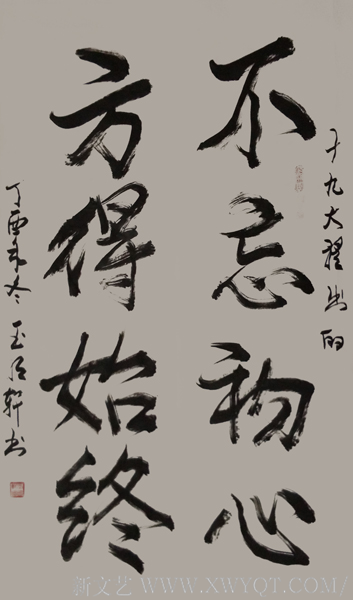 十九大提出的
不忘初心
方得始终
丁酉年冬 玉海轩书
新文艺 WWW.XWYQT.COM/